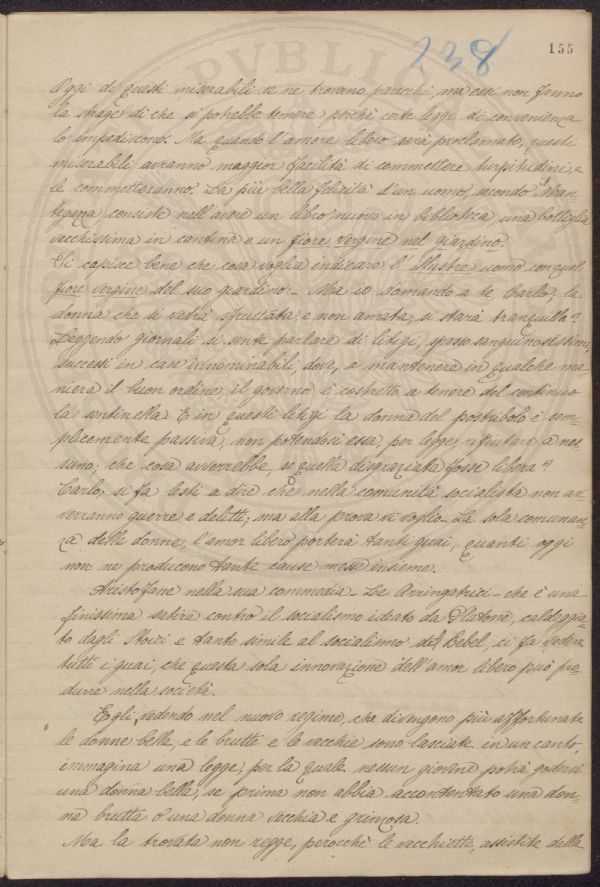 238
155
Oggi di questi miserabili se ne trovano parecchi, ma essi non fanno
la strage di che si potrebbe temere perchè certe leggi di convenienza
lo impediscono. Ma quando l'amore libero sarà proclamato, questi
miserabili avranno maggior facilità di commettere turpitudini, e
le commetteranno. La più bella felicità d'un uomo, secondo Man-
tegazza, consiste nell'avere un libro nuovo in biblioteca, una bottiglia
vecchissima in cantina e un fiore vergine nel giardino.
Si capisce bene che cosa voglia indicare l'illustre uomo con quel
fiore vergine del suo giardino.- Ma io domando a te, Carlo; la
donna che si vedrà sfruttata, e non amata, si starà tranquilla?
Leggendo giornali si sente parlare di litigi, spesso sanguinosissimi,
successi in case innominabili, dove, a mantenere in qualche ma-
niera il buon ordine, il governo è costretto a tenere del continuo
la sentinella. E in questi litigi la donna del postribolo è sem-
plicemente passiva, non potendosi essa, per legge, rifiutare a nes-
suno; che cosa avverrebbe, se quella disgraziata fosse libera?
Carlo; si fa lesti a dire che nella comunità socialista non av-
verranno guerre e delitti; ma alla prova vi voglio- La sola comunan-
za delle donne, l'amor libero porterà tanti guai, quanti oggi
non ne producono tante cause messe insieme.
Aristofane nella sua commedia - Le Arringatrici - che è una
finissima satira contro il socialismo ideato da Platone, caldeggia-
to dagli Stoici e tanto simile al socialismo del Bebel, ci fa vedere
tutti i guai, che questa sola innovazione dell'amor libero può pro-
durre nella società.
Egli, vedendo nel nuovo regime, che divengono più affortunate
le donne belle, e le brutte e le vecchie sono lasciate in un canto,
immagina una legge, per la quale nessun giovine potrà godersi
una donna bella, se prima non abbia accontentato una don-
na brutta o una donna vecchia e grinzosa.
Ma la trovata non regge, perocchè le vecchiette, assistite dalla